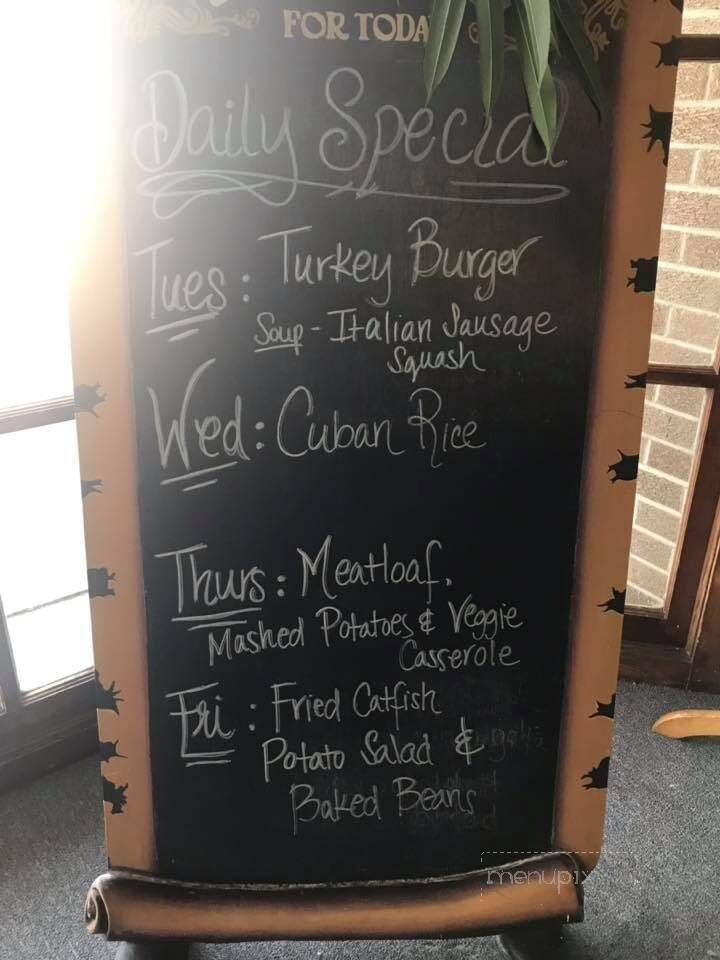 FOR TODA
Daily Special
Tues: Turkey Burger
Soup - Italian Sausage
Squash
Wed: Cuban Rice
Thurs: Meatloaf,
Mashed Potatoes & Veggie
Casserole
Fri: Fried Catfish
Potato Salad &
Baked Beans
menupix